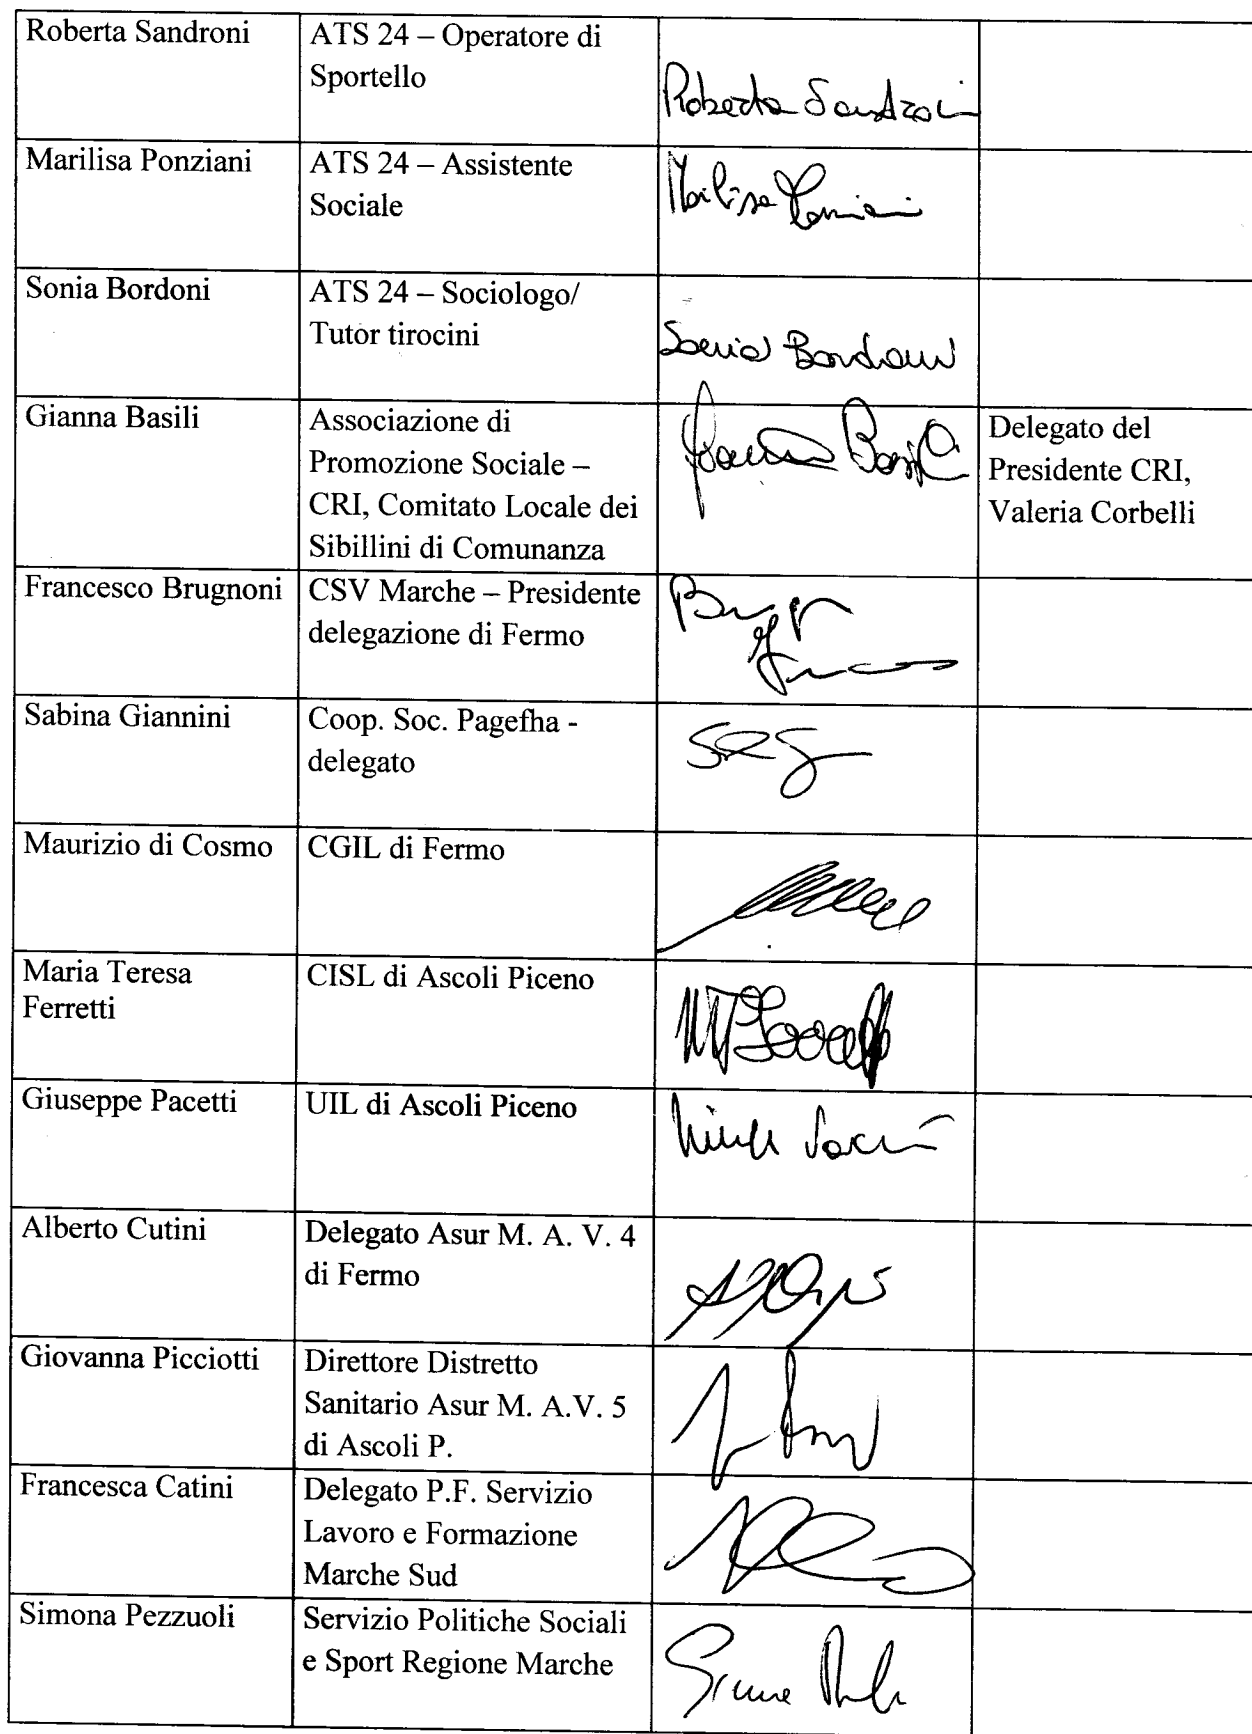 Roberta Sandroni
ATS 24 – Operatore di
Sportello
Roberta Sandroni
Marilisa Ponziani
ATS 24 – Assistente
Sociale
Marilisa Ponziani
Sonia Bordoni
ATS 24 – Sociologo/
Tutor tirocini
Sonia Bordoni
Gianna Basili
Associazione di
Promozione Sociale –
CRI, Comitato Locale dei
Sibillini di Comunanza
Delegato del
Presidente CRI,
Valeria Corbelli
Francesco Brugnoni
CSV Marche – Presidente
delegazione di Fermo
Sabina Giannini
Coop. Soc. Pagefha -
delegato
Maurizio di Cosmo
CGIL di Fermo
Maria Teresa
Ferretti
CISL di Ascoli Piceno
Giuseppe Pacetti
UIL di Ascoli Piceno
Alberto Cutini
Delegato Asur M. A. V. 4
di Fermo
Giovanna Picciotti
Direttore Distretto
Sanitario Asur M. A.V. 5
di Ascoli P.
Francesca Catini
Delegato P.F. Servizio
Lavoro e Formazione
Marche Sud
Simona Pezzuoli
Servizio Politiche Sociali
e Sport Regione Marche